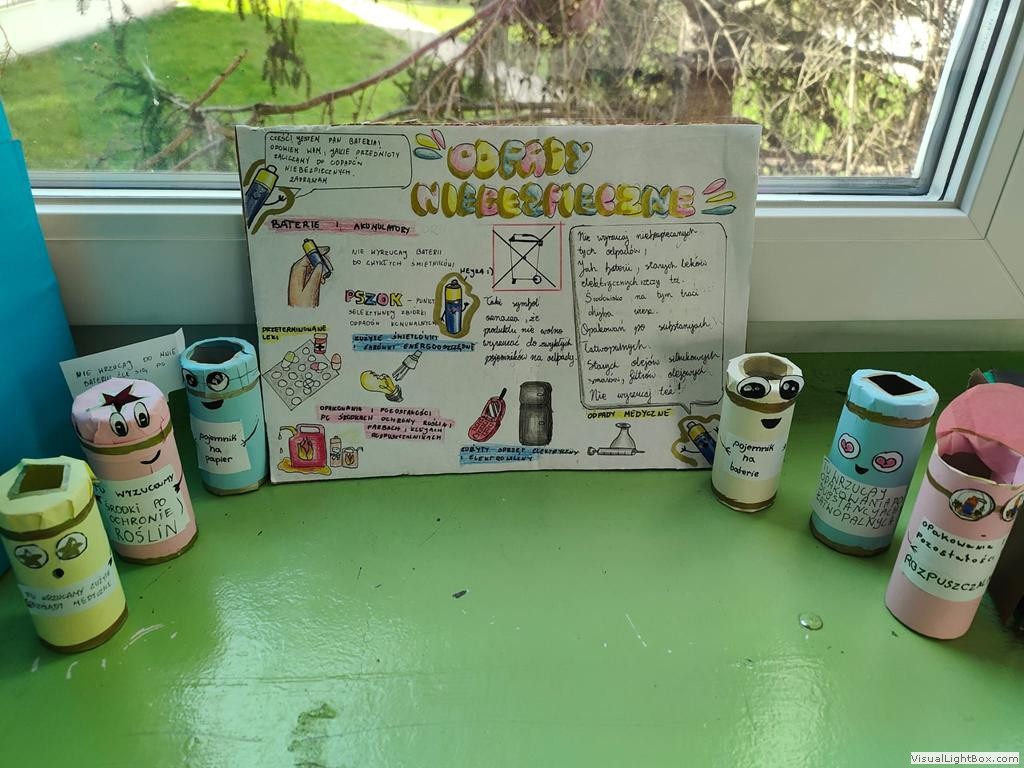 CZEŚĆ! JESTEM PAN BATERIA!
OPOWIEM WAM, JAKIE PRZEDMIOTY
ZALICZAMY DO ODPADÓW
NIEBEZPIECZNYCH.
ZAPRASZAM
ODPADY
NIEBEZPIECZNE
BATERIE I AKUMULATORY
NIE WYRZUCAJ BATERII
DO ZWYKŁYCH ŚMIETNIKÓW!
HEJKA:)
PSZOK - PUNKT
SELEKTYWNEJ ZBIÓRKI
ODPADÓW KOMUNALNYCH
ZUŻYTE ŚWIETLÓWKI
I ŻARÓWKI ENERGOOSZCZĘDNE
PRZETERMINOWANE
LEKI
Taki symbol
oznacza, że
produktu nie wolno
wyrzucać do zwykłych
pojemników na odpady.
Nie wyrzucaj niebezpiecznych
tych odpadów,
Jak baterii, starych leków
elektrycznych rzeczy też.
Środowisko na tym traci
chyba wiesz.
Opakowań po substancjach
Łatwopalnych.
Starych olejów silnikowych
smarów, filtrów olejowych
Nie wyrzucaj też!
OPAKOWANIA I POZOSTAŁOŚCI
PO ŚRODKACH OCHRONY ROŚLIN,
FARBACH, KLEJACH
ROZPUSZCZALNIKACH
ZUŻYTY SPRZĘT ELEKTRYCZNY
I ELEKTRONICZNY
ODPADY MEDYCZNE
NIE WRZUCAJ DO MNIE
BATERII
TU WRZUCAMY
ODPADY MEDYCZNE
TU WYRZUCAMY
ŚRODKI PO
OCHRONIE
ROŚLIN
pojemnik
na
papier
pojemnik
na
baterie
TU WRZUCAJ
OPAKOWANIA PO
SUBSTANCJACH
ŁATWOPALNYCH
opakowania
pozostałości
VisualLightBox.com